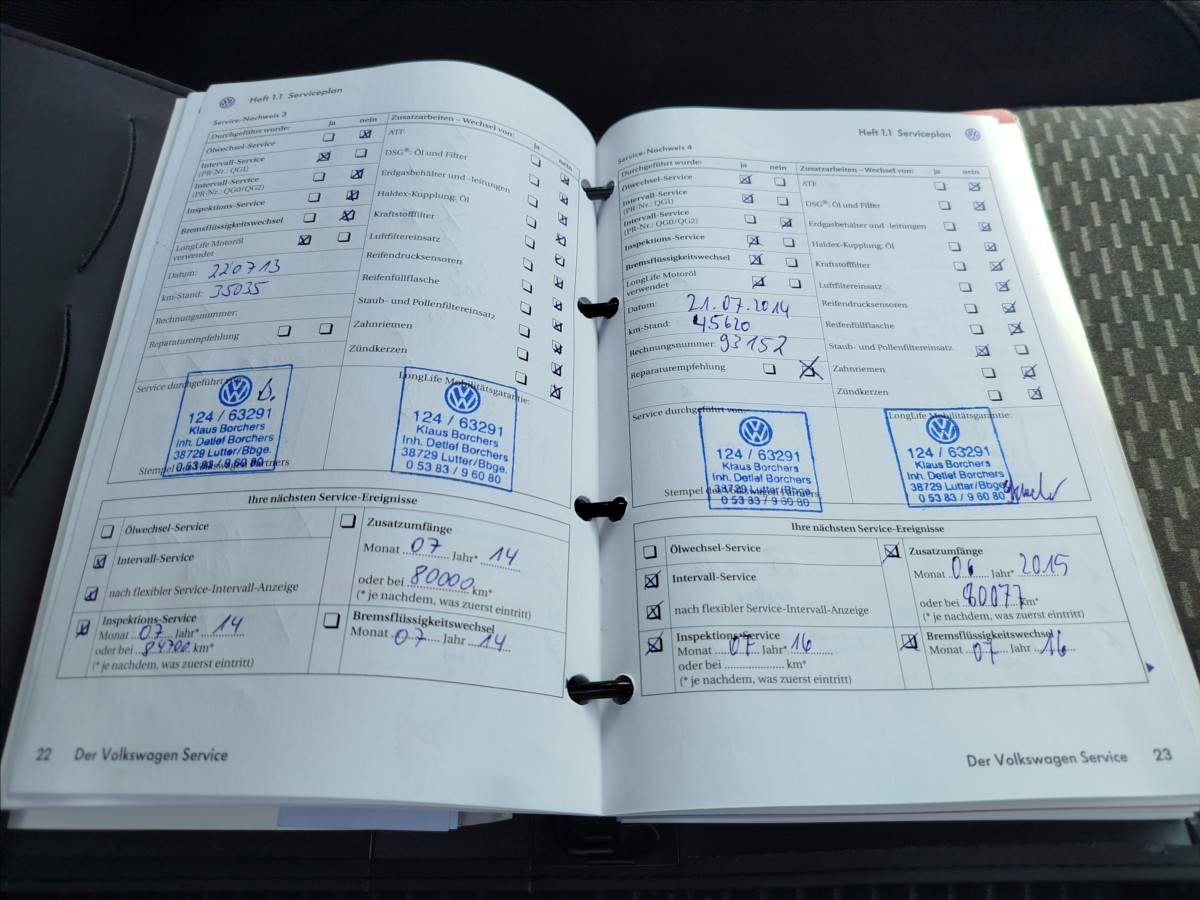 Heft 1.1 Serviceplan
Service-Nachweis 3
Durchgeführt wurde: ja nein
Ölwechsel-Service
Intervall-Service
(PR-Nr.: QG1)
Intervall-Service
(PR-Nr.: QG0/QG2)
Inspektions-Service
Bremsflüssigkeitswechsel
LongLife Motoröl
verwendet
Datum: 220713
km-Stand: 35035
Rechnungsnummer:
Reparaturempfehlung
Zusatzarbeiten – Wechsel von: ja nein
ATF
DSG®: Öl und Filter
Erdgasbehälter und -leitungen
Haldex-Kupplung: Öl
Kraftstofffilter
Luftfiltereinsatz
Reifendrucksensoren
Reifenfüllflasche
Staub- und Pollenfiltereinsatz
Zahnriemen
Zündkerzen
Service durchgeführt
124 / 63291
Klaus Borchers
Inh. Detlef Borchers
38729 Lutter/Bbge.
0 53 83 / 9 60 80
Stempel des Volkswagen Partners
LongLife Mobilitätsgarantie:
124 / 63291
Klaus Borchers
Inh. Detlef Borchers
38729 Lutter/Bbge.
0 53 83 / 9 60 80
Ihre nächsten Service-Ereignisse
Ölwechsel-Service
Intervall-Service
nach flexibler Service-Intervall-Anzeige
Inspektions-Service
Monat 07 Jahr* 14
oder bei 84700 km*
(* je nachdem, was zuerst eintritt)
Zusatzumfänge
Monat 07 Jahr* 14
oder bei 80000 km*
(* je nachdem, was zuerst eintritt)
Bremsflüssigkeitswechsel
Monat 07 Jahr 14
22 Der Volkswagen Service
Heft 1.1 Serviceplan
Service-Nachweis 4
Durchgeführt wurde: ja nein
Ölwechsel-Service
Intervall-Service
(PR-Nr.: QG1)
Intervall-Service
(PR-Nr.: QG0/QG2)
Inspektions-Service
Bremsflüssigkeitswechsel
LongLife Motoröl
verwendet
Datum: 21.07.2014
km-Stand: 45620
Rechnungsnummer: 93152
Reparaturempfehlung
Zusatzarbeiten – Wechsel von: ja nein
ATF
DSG®: Öl und Filter
Erdgasbehälter und -leitungen
Haldex-Kupplung: Öl
Kraftstofffilter
Luftfiltereinsatz
Reifendrucksensoren
Reifenfüllflasche
Staub- und Pollenfiltereinsatz
Zahnriemen
Zündkerzen
Service durchgeführt von:
124 / 63291
Klaus Borchers
Inh. Detlef Borchers
38729 Lutter/Bbge.
0 53 83 / 9 60 80
Stempel des Volkswagen Partners
LongLife Mobilitätsgarantie:
124 / 63291
Klaus Borchers
Inh. Detlef Borchers
38729 Lutter/Bbge.
0 53 83 / 9 60 80
Ihre nächsten Service-Ereignisse
Ölwechsel-Service
Intervall-Service
nach flexibler Service-Intervall-Anzeige
Inspektions-Service
Monat 07 Jahr* 16
oder bei km*
(* je nachdem, was zuerst eintritt)
Zusatzumfänge
Monat 06 Jahr* 2015
oder bei 80077 km*
(* je nachdem, was zuerst eintritt)
Bremsflüssigkeitswechsel
Monat 07 Jahr 16
Der Volkswagen Service 23